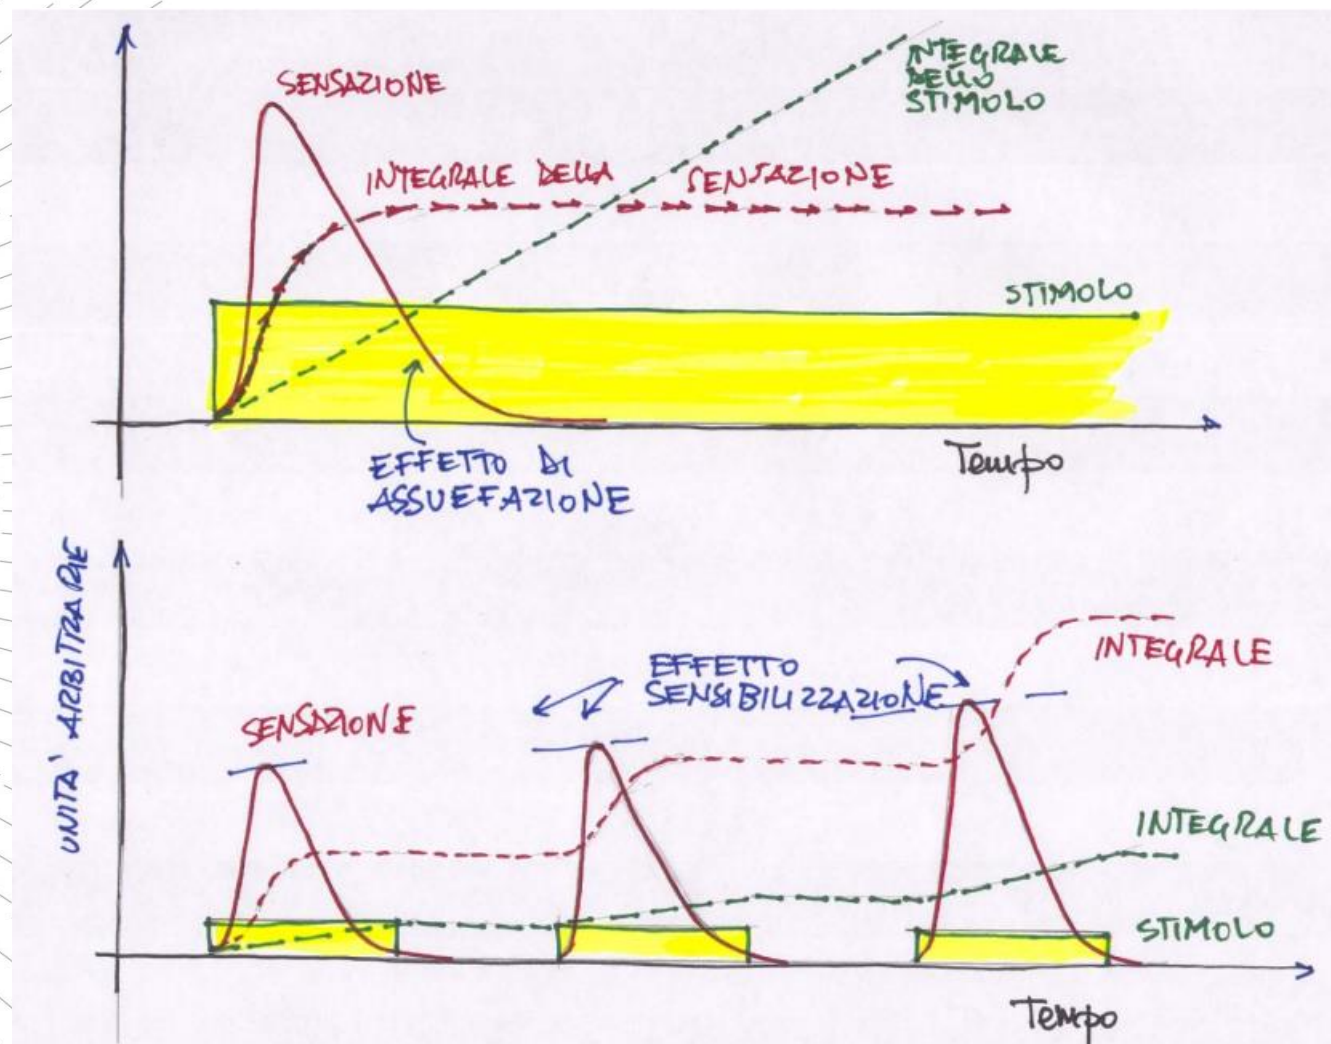 SENSAZIONE
INTEGRALE
DELLO
STIMOLO
INTEGRALE DELLA SENSAZIONE
STIMOLO
Tempo
EFFETTO DI
ASSUEFAZIONE
UNITA' ARBITRARIE
EFFETTO
SENSIBILIZZAZIONE
INTEGRALE
SENSAZIONE
INTEGRALE
STIMOLO
Tempo